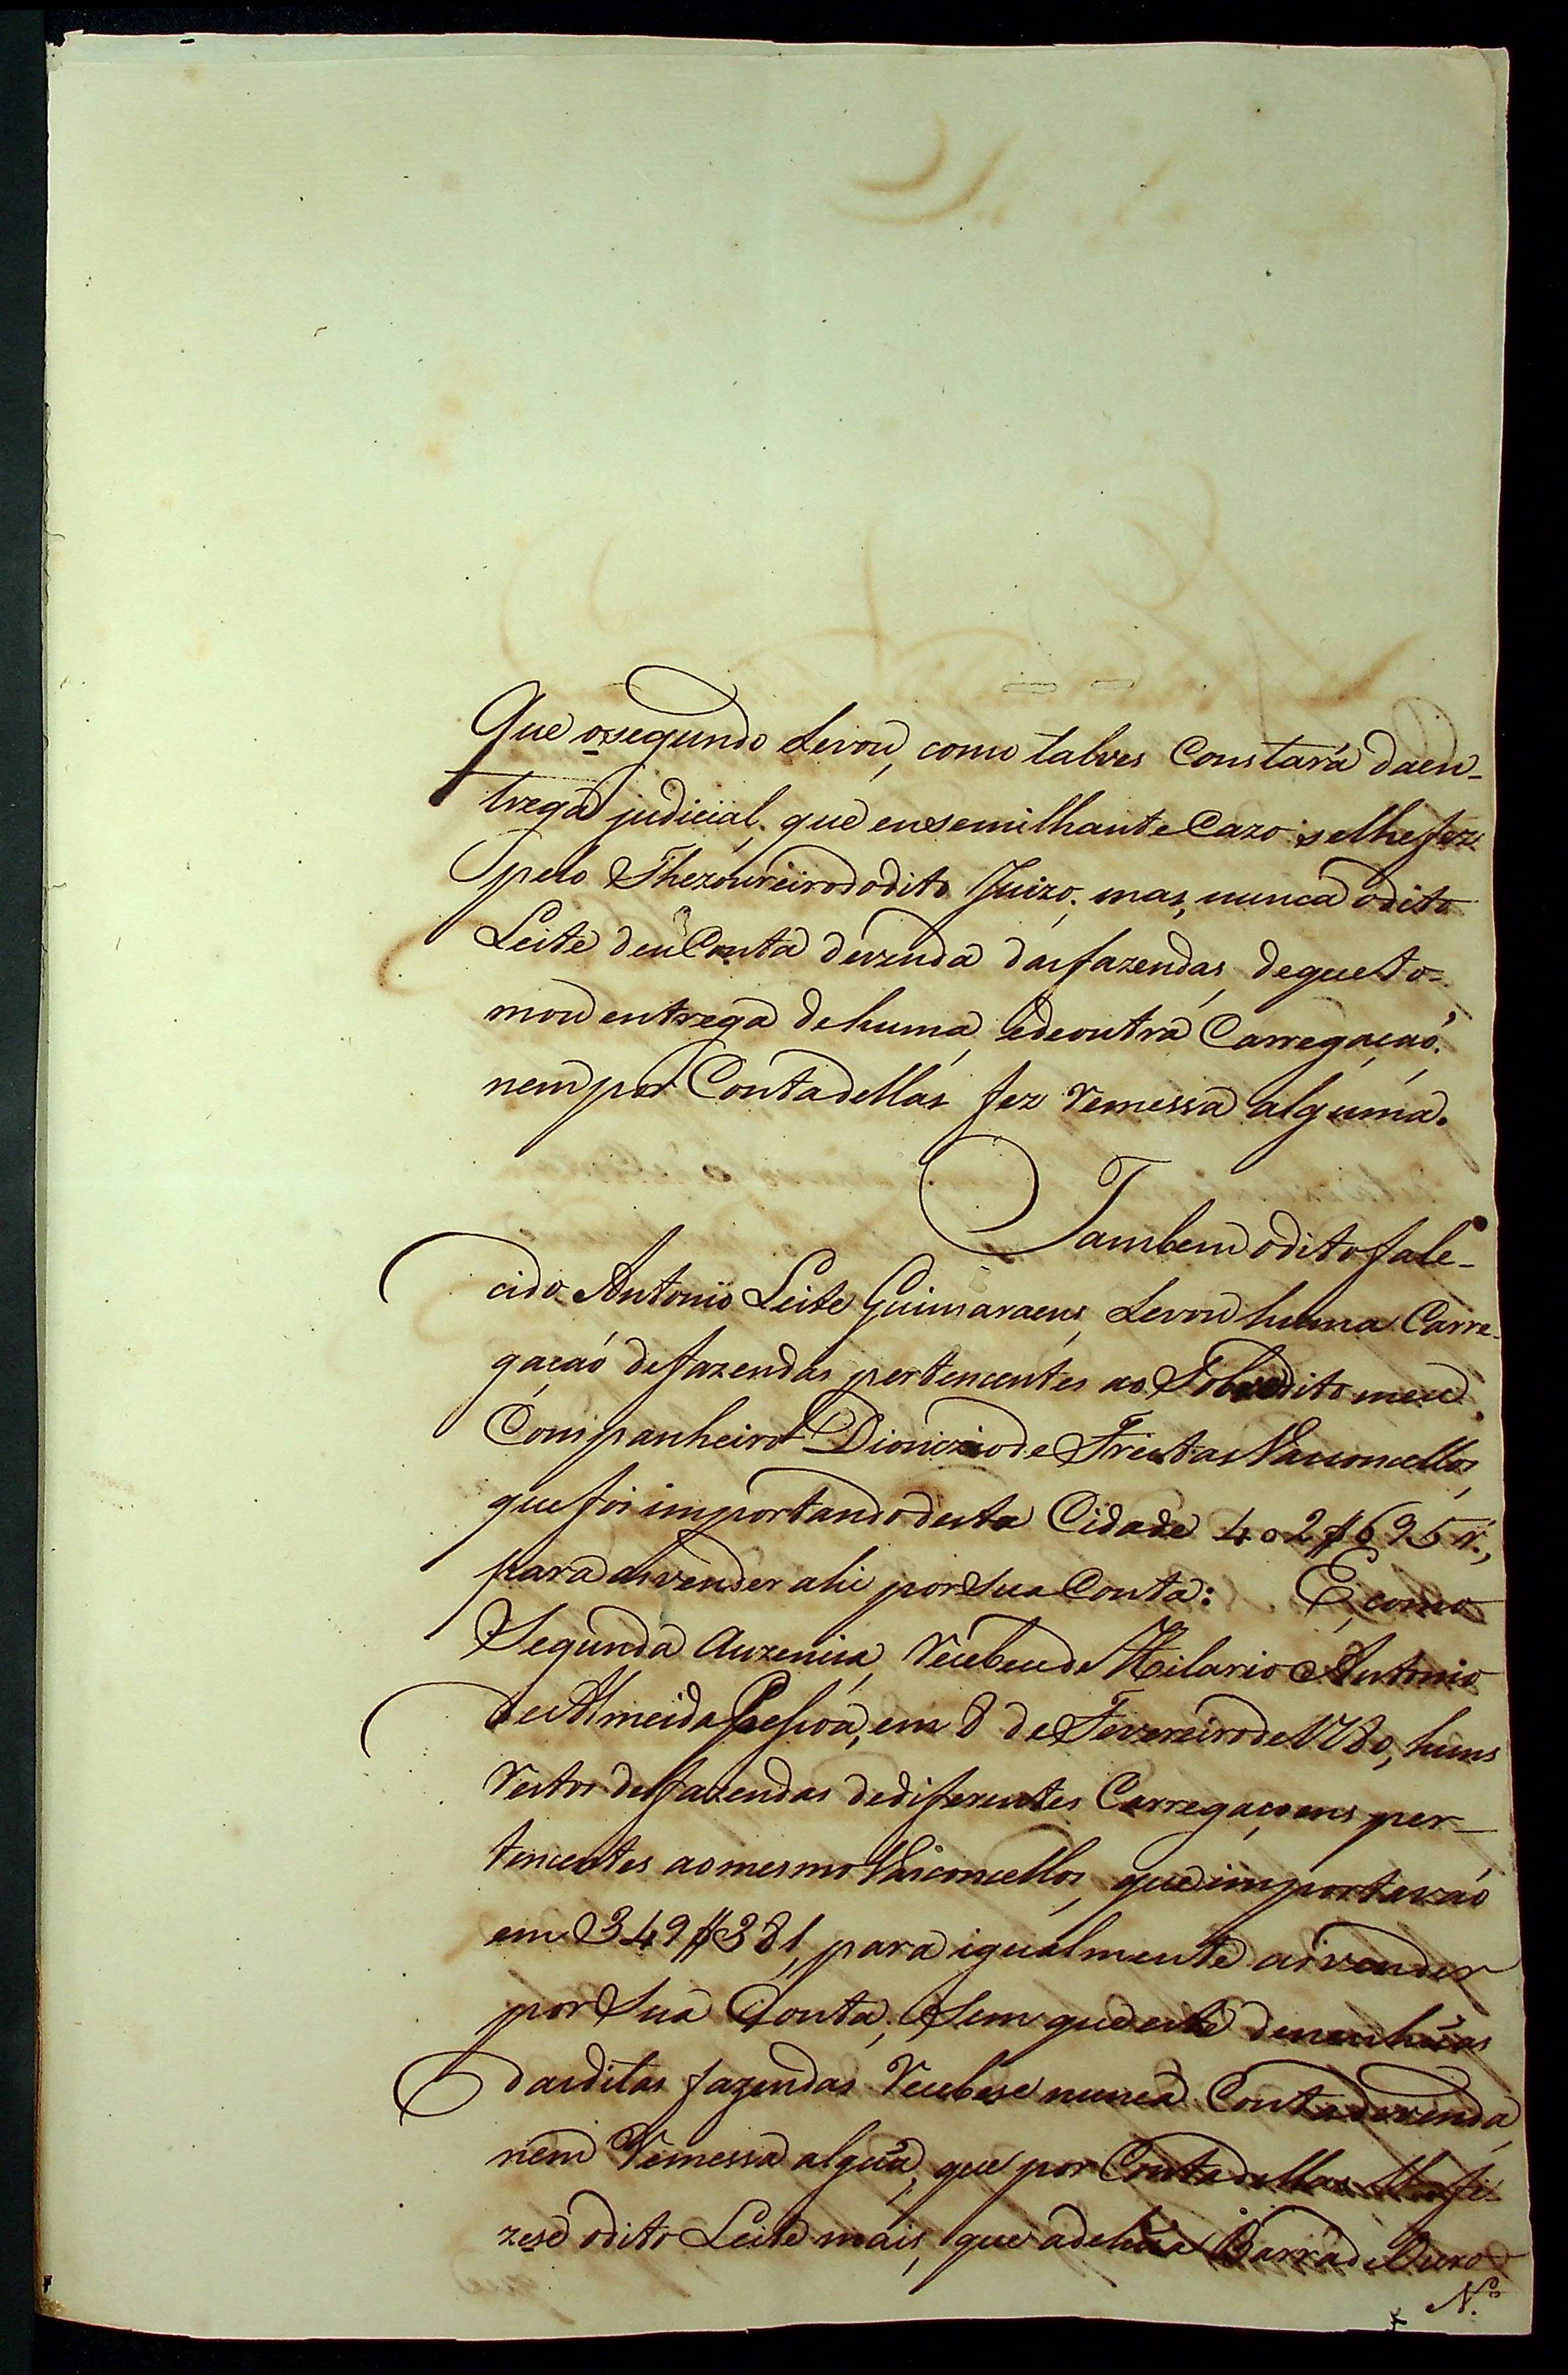 Que o segundo Levou, como talves Constará daen-
trega judicial, que em semilhante Cazo se lhe fez
pelo Thezoureiro do dito Juizo; mas, nunca o dito
Leite deu Conta devenda das fazendas, de que to-
mou entrega de huma, e de outra Carregaçaõ,
nem por Conta dellas fez remessa alguma.
Tambem o dito fale-
cido Antonio Leite Guimaraens, Levou huma Carre-
gaçaõ de fazendas pertencentes ao Sobredito meu
Companheiro Dionizio de Freitas Vasconcellos,
que foi importando desta Cidade 402$695 r.,
para as vender ahi por sua Conta: E, como
Segunda auzencia, recebeu de Hilario Antonio
de Almeida Pessoa, em 8 de Fevereiro de 1780, huns
restos de fazendas de diferentes Carregaçoens per-
tencentes ao mesmo Vasconcellos, que importavaõ
em 349$381, para igualmente as vender
por sua Conta; Sem que este de nenhũas
das ditas fazendas recebese nunca Conta de venda,
nem remessa algũa, que por Conta dellas lhe fi-
zese o dito Leite mais, que a de hũa Barra de Ouro
N.º